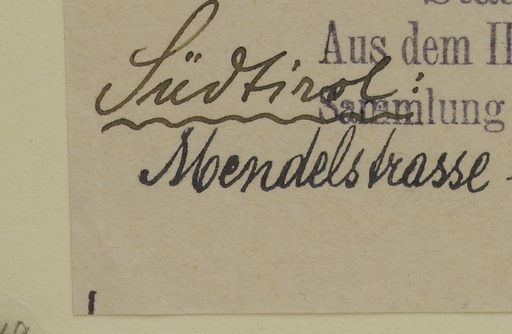 Aus dem
Südtirol:
Sammlung
Mendelstrasse -